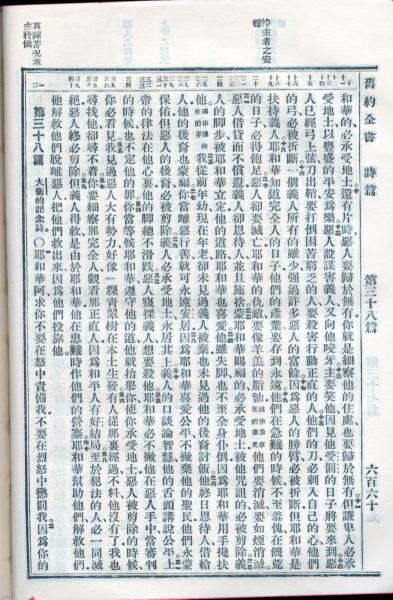 舊約全書 詩篇 第三十八篇 六百六十
和華的必承受地土還有片時惡人要歸於無有你就是細察他的住處也要歸於無有但謙卑人必承
受地土以豐盛的平安為樂惡人設謀害義人又向他咬牙主要笑他因見他受罰的日子將要來到惡
人已經弓上弦刀出鞘要打倒困苦窮乏的人要殺害行動正直的人他們的刀必刺入自己的心他們
的弓必被折斷一個義人所有的雖少強過許多惡人的富餘因為惡人的膀臂必被折斷但耶和華是
扶持義人耶和華知道完全人的日子他們的產業要存到永遠他們在急難的時候不至羞愧在饑荒
的日子必得飽足惡人卻要滅亡耶和華的仇敵要像羊羔的脂油他們要消滅要如煙消滅
惡人借貸而不償還義人卻恩待人並且施捨蒙耶和華賜福的必承受地土被他咒詛的必被剪除義
人的腳步被耶和華立定他的道路耶和華也喜愛他雖失腳也不至全身仆倒因為耶和華用手攙扶
他我從前年幼現在年老卻未見過義人被棄也未見過他的後裔討飯他終日恩待人借給
人他的後裔也蒙福你當離惡行善就可永遠安居因為耶和華喜愛公平不撇棄他的聖民他們永蒙
保佑但惡人的後裔必被剪除義人必承受地土永居其上義人的口談論智慧他的舌頭講說公平上
帝的律法在他心裏他的腳總不滑跌惡人窺探義人想要殺他耶和華必不撇他在惡人手中當審判
的時候也不定他的罪你當等候耶和華遵守他的道他就抬舉你使你承受地土惡人被剪除的時候
你必看見我見過惡人大有勢力好像一根青翠樹在本土生發有人從那裏經過不料他沒有了我也
尋找他卻尋不着你要細察那完全人觀看那正直人因為和平人有好結局至於犯法的人必一同滅
絕惡人終必剪除但義人得救是由於耶和華他在患難時作他們的營寨耶和華幫助他們解救他們
他解救他們脫離惡人把他們救出來因為他們投靠他
第三十八篇 大衛的記念詩。○耶和華阿求你不要在怒中責備我不要在烈怒中懲罰我因為你的